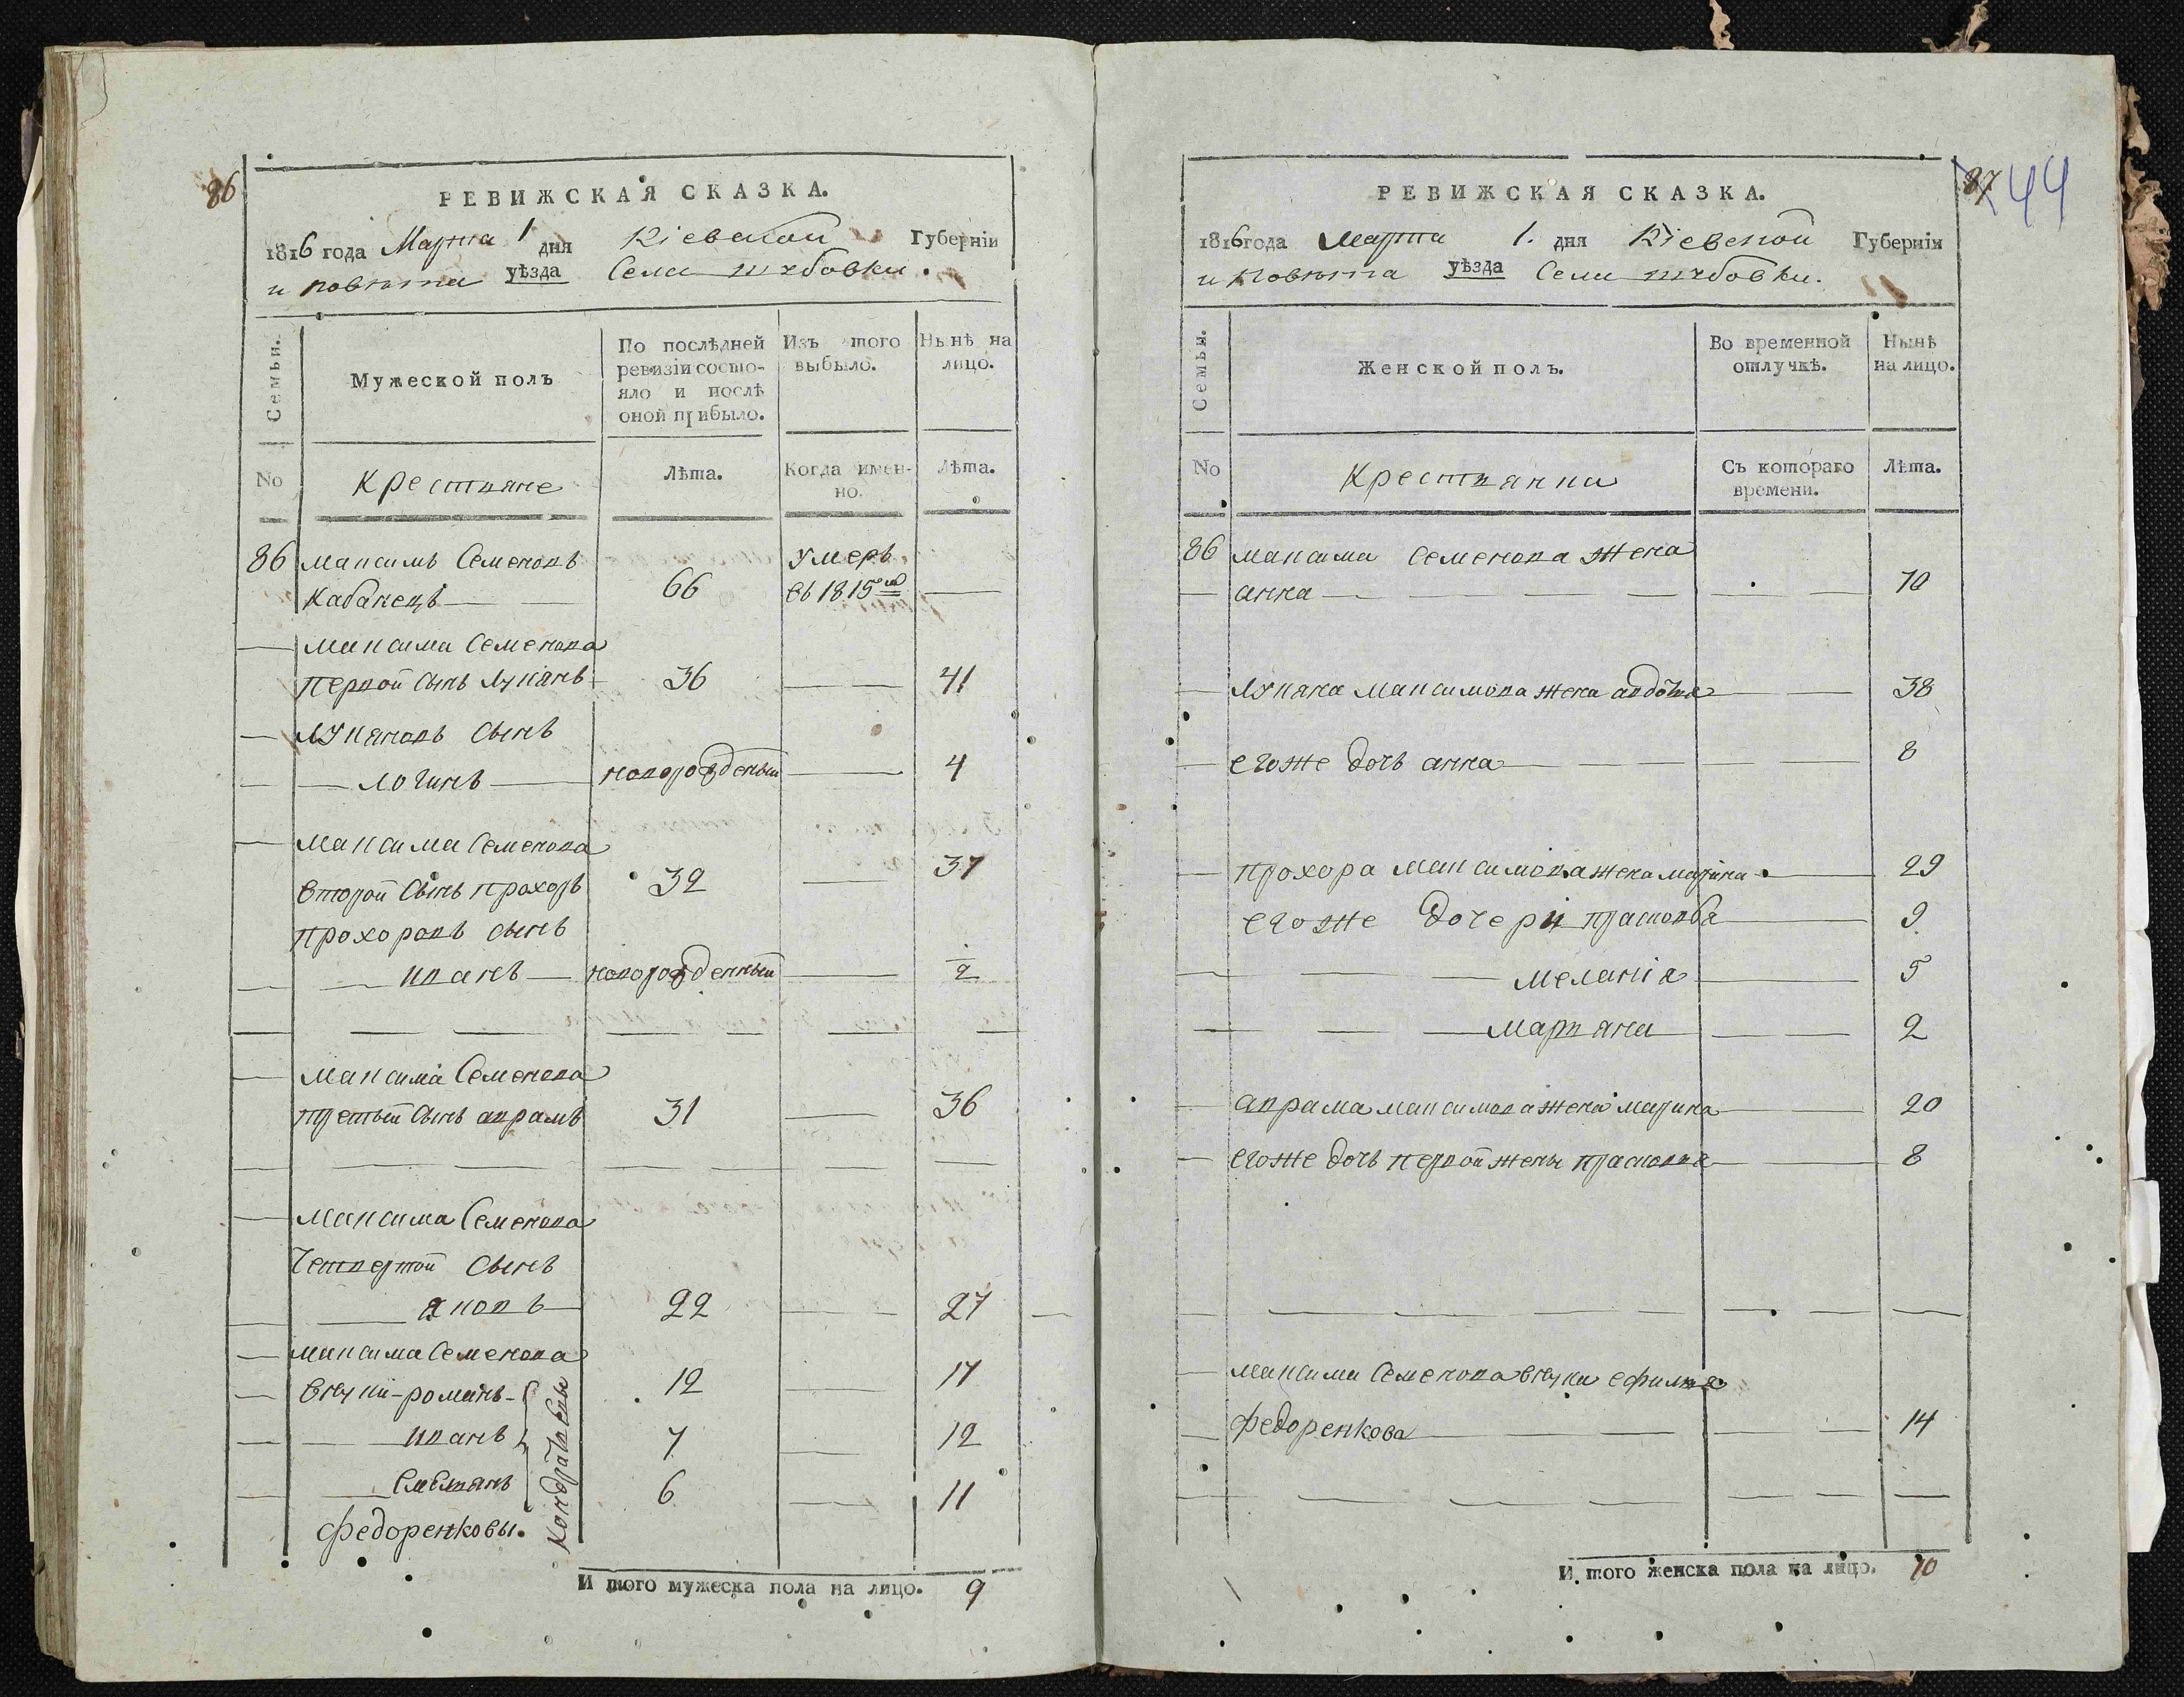 86
РЕВИЖСКАЯ СКАЗКА.
1816 года Марта 1 дня Кіевской Губерніи
и повѣта уѣзда Села
Семьи.
Мужеской полъ
По послѣдней ревизіи состояло и послѣ оной прибыло.
Изъ того выбыло.
Нынѣ на лицо.
No
Крестьяне
Лѣта.
Когда именно.
Лѣта.
86 максимъ Семеновъ умеръ
Кабанецъ 66 въ 1815
максима Семенова
первой сынъ лукянъ 36 41
лукяновъ сынъ
логинъ новорожденый 4
максима Семенова
второй сынъ прохоръ 32 37
прохоровъ сынъ
иванъ новорожденный 2
максима Семенова
третый сынъ аврамъ 31 36
максима Семенова
четвертой сынъ
яковъ 22 27
максима Семенова
внуки романъ 12 17
иванъ 7 12
6 11
Кондратьевы
Федоренковы.
И того мужеска пола на лицо. 9
87 44
РЕВИЖСКАЯ СКАЗКА.
1816 года Марта 1. дня Кіевской Губерніи
и Повѣта уѣзда Села
Семьи.
Женской полъ.
Во временной отлучкѣ.
Нынѣ на лицо.
No
Крестьянки
Съ котораго времени.
Лѣта.
86 максима Семенова жена
анна 70
лукяна максимова жена авдотья 38
егоже дочь анна 8
прохора максимова жена марина 29
егоже дочери прасковья 9
меланія 5
марьяна 2
аврама максимова жена марина 20
егоже дочь первой жены прасковья 8
максима Семенова внука ефимья
федоренкова 14
И того женска пола на лицо. 10